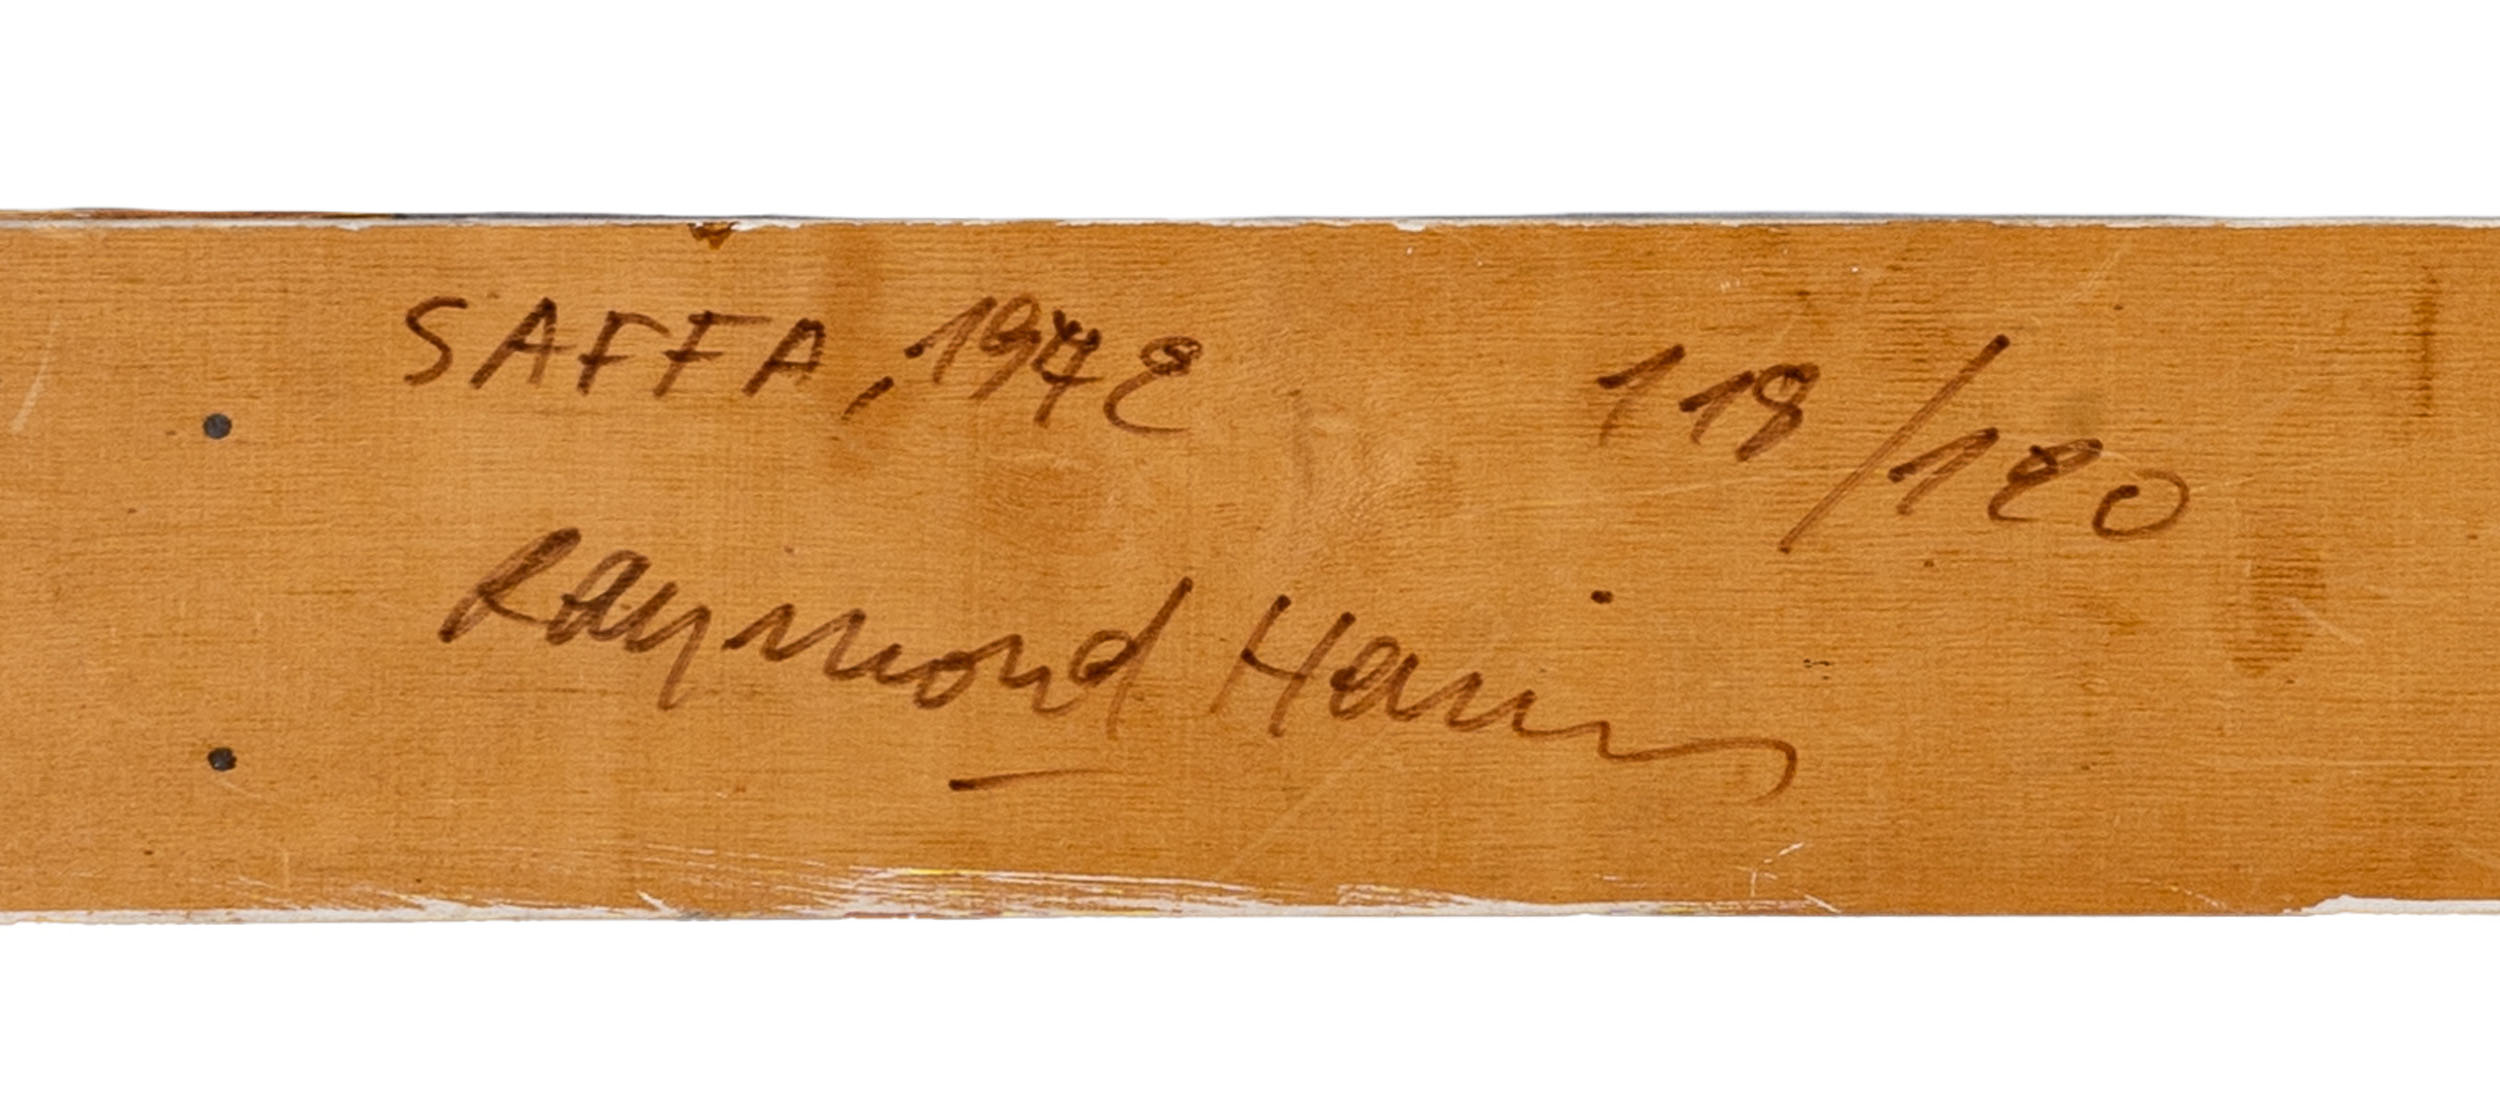 SAFFA, 1972 118/120
Raymond Hains